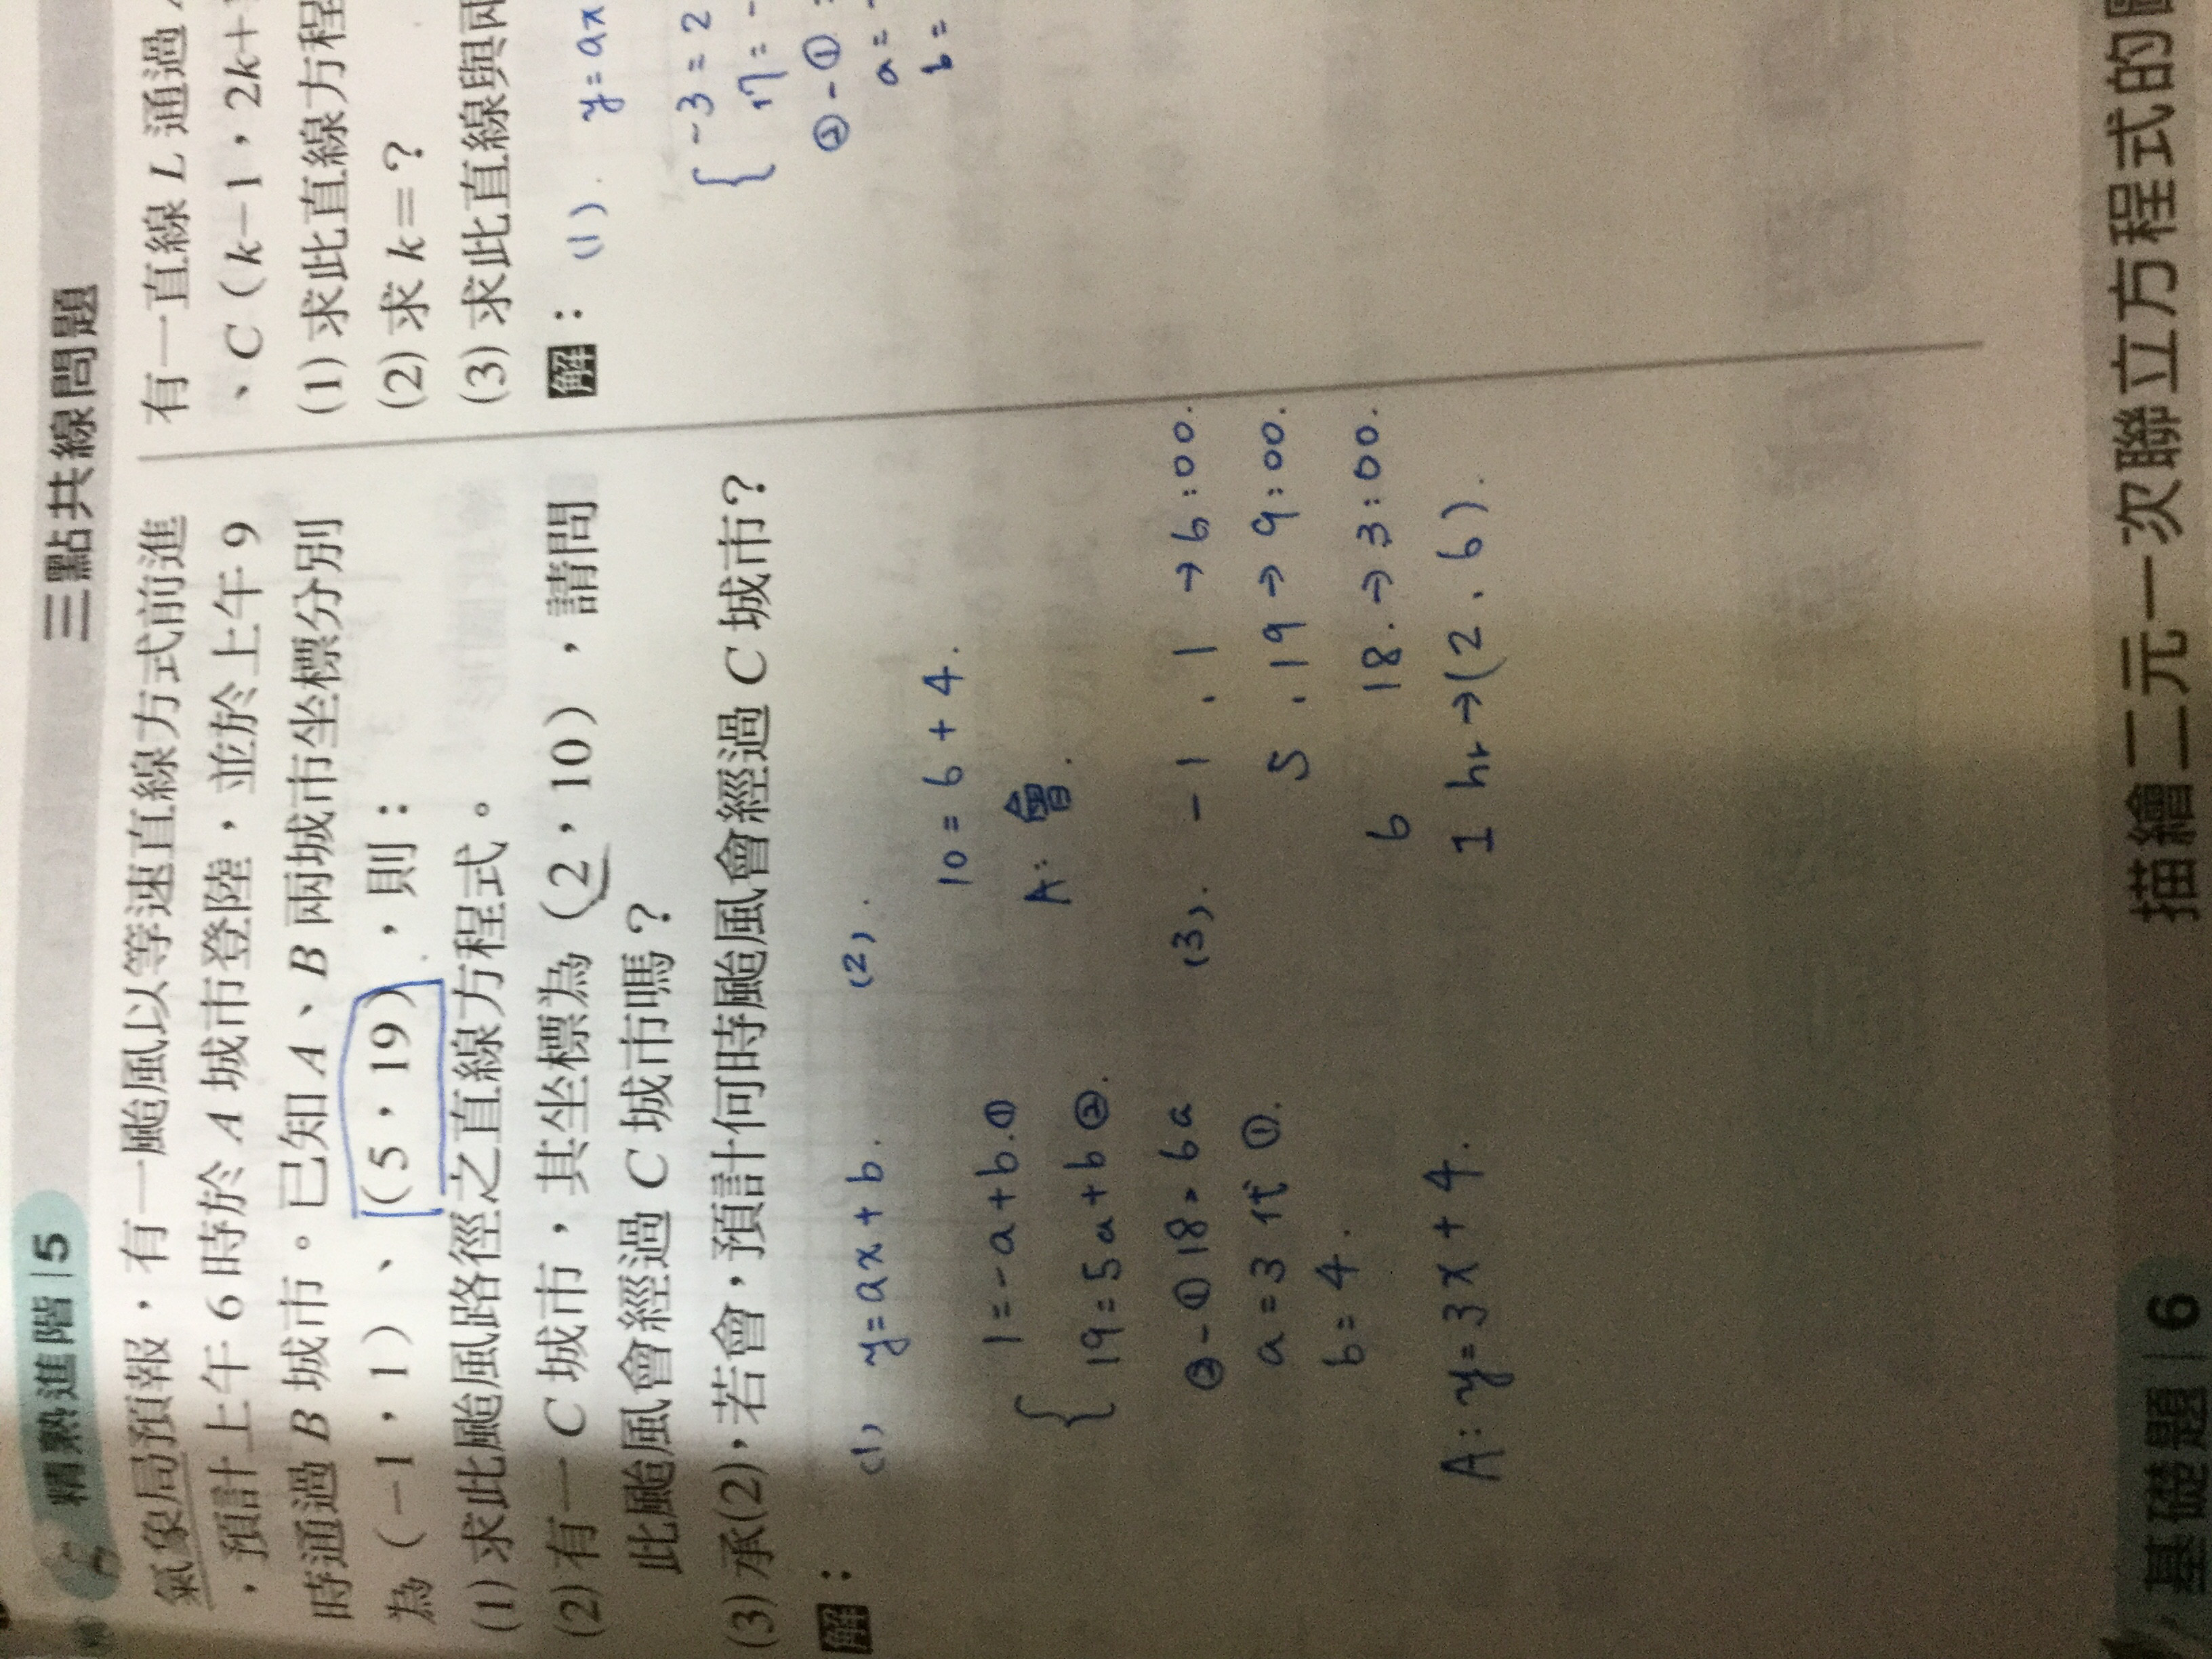 精熟進階 5
三點共線問題
氣象局預報,有一颱風以等速直線方式前進
,預計上午 6 時於 A 城市登陸,並於上午 9
時通過 B 城市。已知 A、B 兩城市坐標分別
為(-1,1)、(5,19),則:
(1) 求此颱風路徑之直線方程式。
(2) 有一 C 城市,其坐標為(2,10),請問
此颱風會經過 C 城市嗎?
(3) 承(2),若會,預計何時颱風會經過 C 城市?
解:
(1) y=ax+b.
1=-a+b.①
19=5a+b②.
②-① 18=6a
a=3 代①.
b=4.
A:y=3x+4.
(2).
10=6+4.
A:會.
(3). -1 . 1 → 6:00.
5 . 19 → 9:00.
6 18. → 3:00.
1 hr → (2.6).
有一直線 L 通過
、C(k-1,2k+
(1) 求此直線方程
(2) 求 k=?
(3) 求此直線與兩
解: (1). y=ax
-3=2
17=-
②-①:
a=-
b=
基礎題 6
描繪二元一次聯立方程式的圖